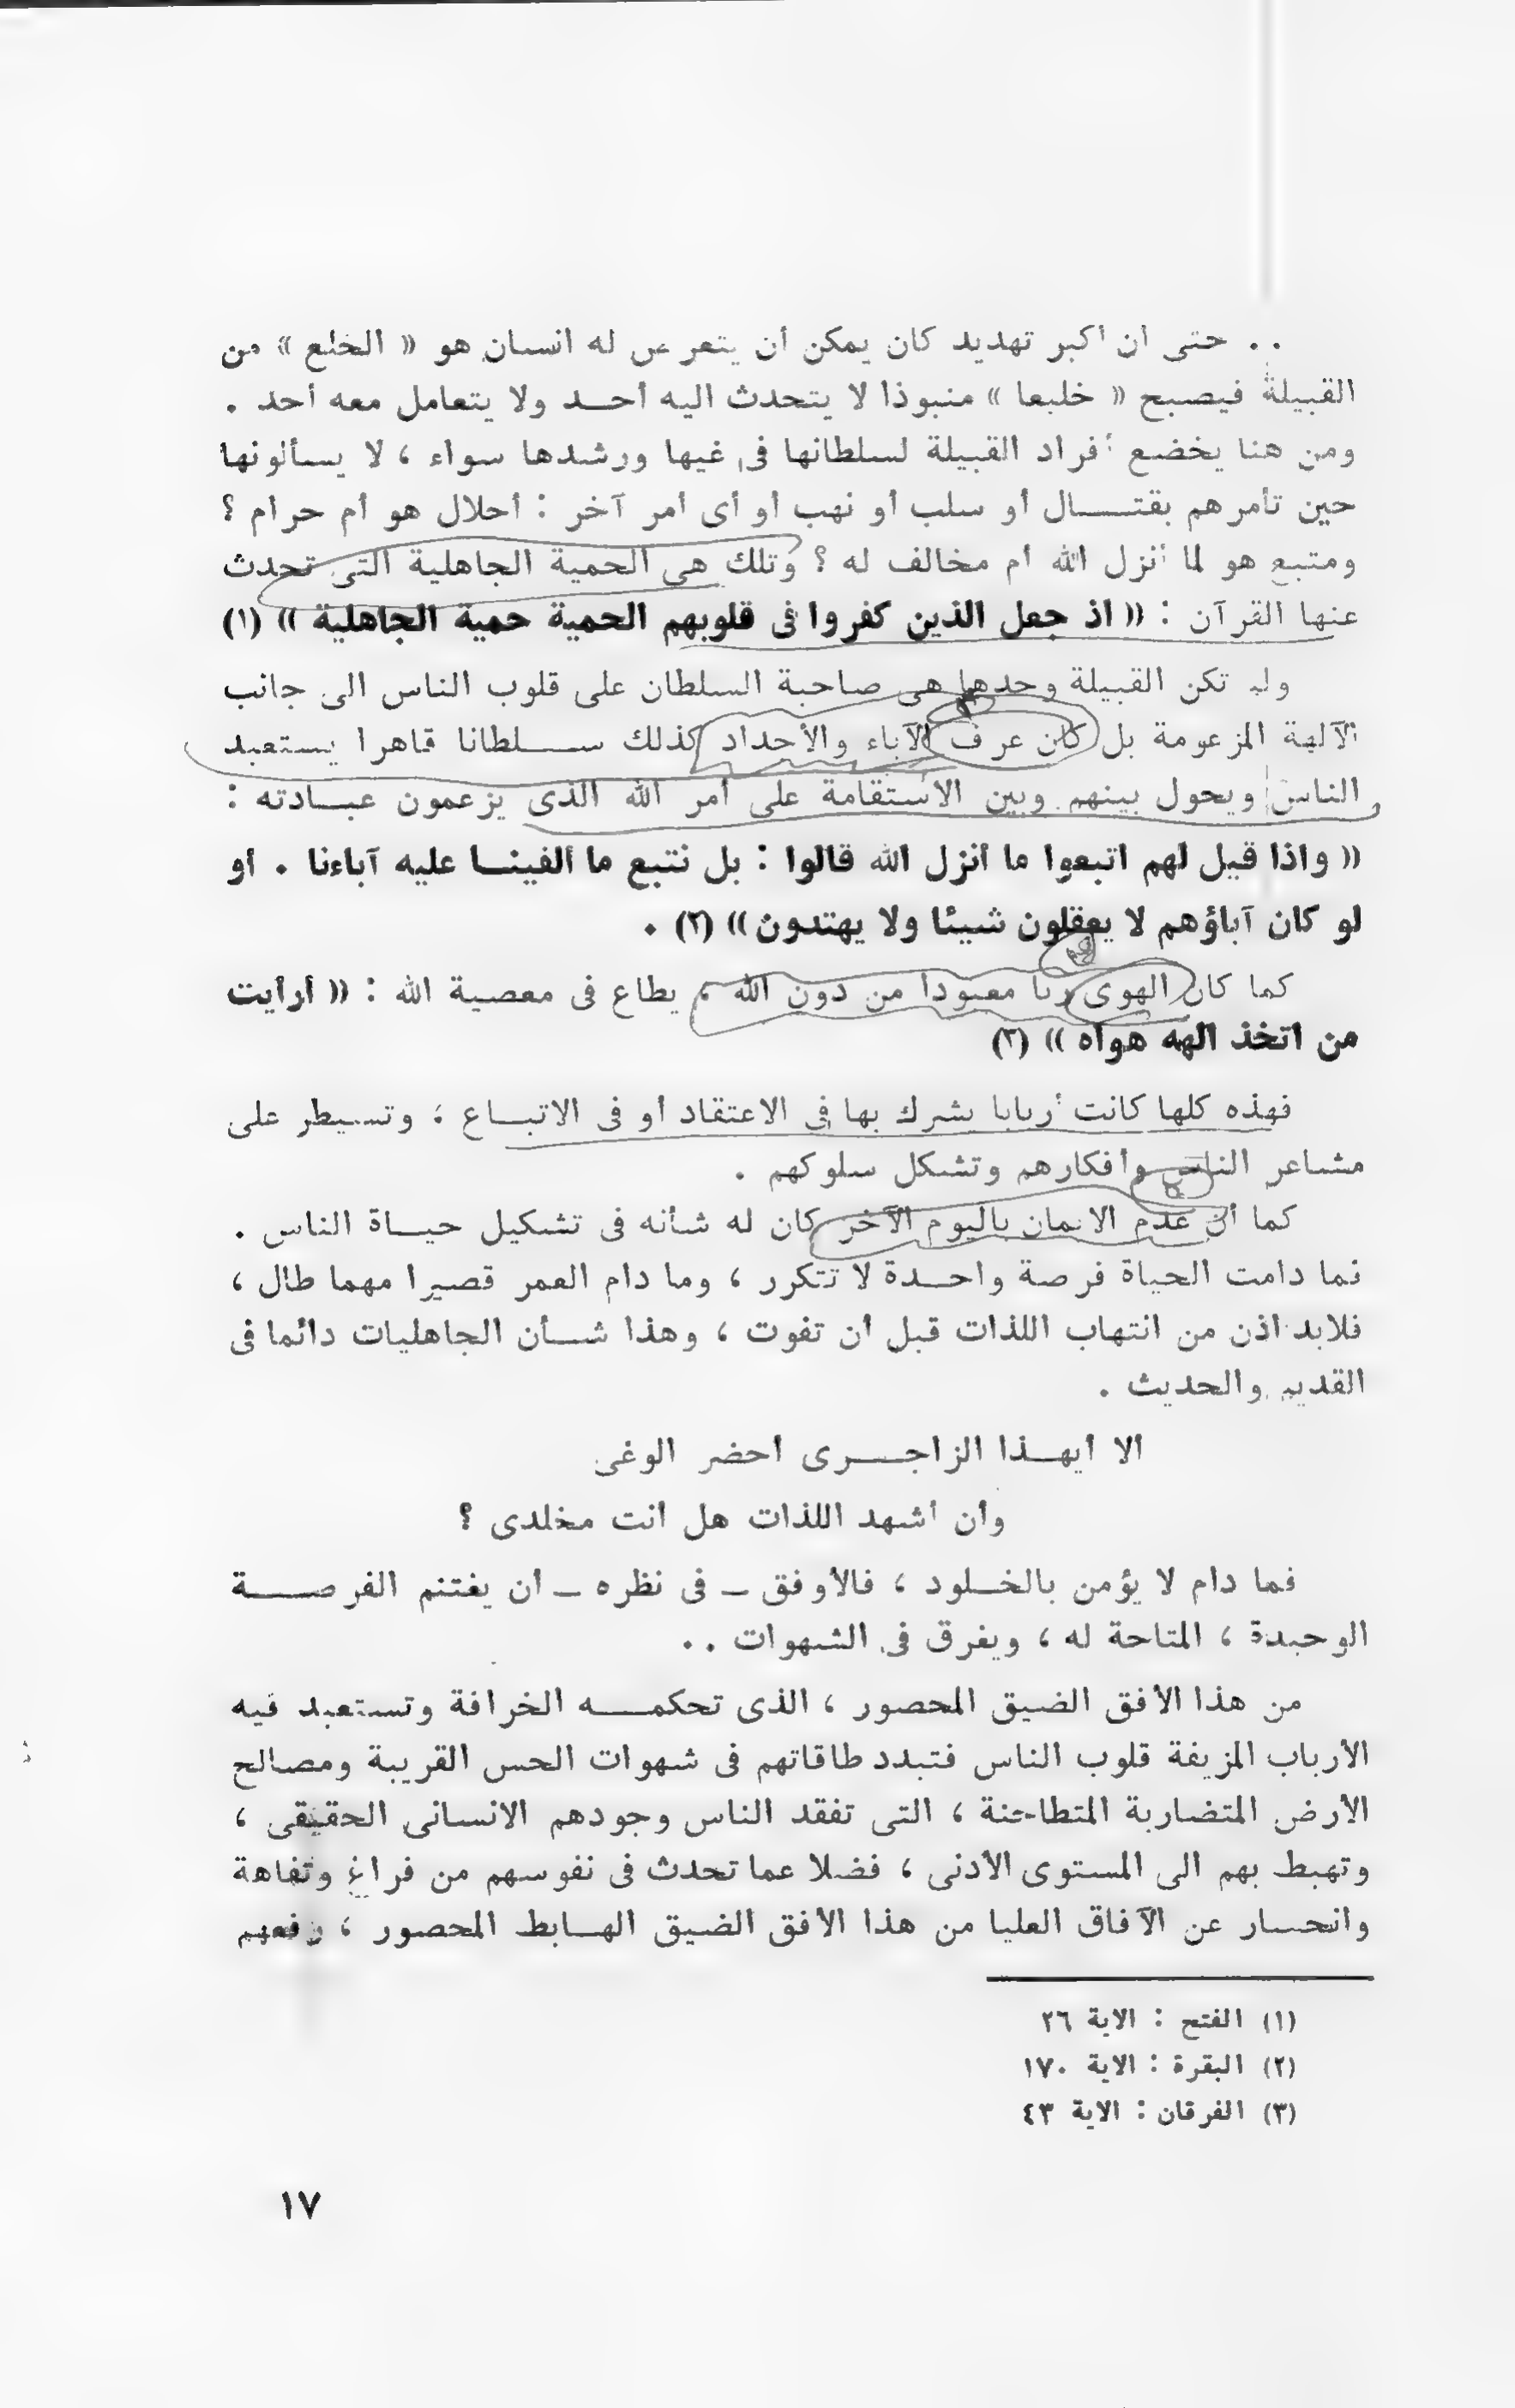 . . حتى ان أكبر تهديد كان يمكن أن يتعرض له انسان هو « الخلع » من
القبيلة فيصبح « خليعا » منبوذا لا يتحدث اليه أحد ولا يتعامل معه أحد .
ومن هنا يخضع أفراد القبيلة لسلطانها فى غيها ورشدها سواء ، لا يسألونها
حين تأمرهم بقتال أو سلب أو نهب أو أى أمر آخر : أحلال هو أم حرام ؟
ومتبع هو لما أنزل الله أم مخالف له ؟ وتلك هى الحمية الجاهلية التى تحدث
عنها القرآن : « اذ جعل الذين كفروا فى قلوبهم الحمية حمية الجاهلية » (١)
ولم تكن القبيلة وحدها هى صاحبة السلطان على قلوب الناس الى جانب
الآلهة المزعومة بل كان عرف الآباء والأجداد كذلك سلطانا قاهرا يستعبد
الناس ويحول بينهم وبين الاستقامة على أمر الله الذى يزعمون عبادته :
« واذا قيل لهم اتبعوا ما أنزل الله قالوا : بل نتبع ما ألفينا عليه آباءنا . أو
لو كان آباؤهم لا يعقلون شيئا ولا يهتدون » (٢) .
كما كان الهوى ربا معبودا من دون الله ، يطاع فى معصية الله : « أرأيت
من اتخذ الهه هواه » (٣)
فهذه كلها كانت أربابا يشرك بها فى الاعتقاد أو فى الاتباع ، وتسيطر على
مشاعر الناس وأفكارهم وتشكل سلوكهم .
كما أن عدم الايمان باليوم الآخر كان له شأنه فى تشكيل حياة الناس .
فما دامت الحياة فرصة واحدة لا تتكرر ، وما دام العمر قصيرا مهما طال ،
فلابد اذن من انتهاب اللذات قبل أن تفوت ، وهذا شأن الجاهليات دائما فى
القديم والحديث .
ألا أيهذا الزاجرى أحضر الوغى
وأن أشهد اللذات هل أنت مخلدى ؟
فما دام لا يؤمن بالخلود ، فالأوفق – فى نظره – أن يغتنم الفرصة
الوحيدة ، المتاحة له ، ويغرق فى الشهوات . .
من هذا الأفق الضيق المحصور ، الذى تحكمه الخرافة وتستعبد فيه
الأرباب المزيفة قلوب الناس فتبدد طاقاتهم فى شهوات الحس القريبة ومصالح
الأرض المتضاربة المتطاحنة ، التى تفقد الناس وجودهم الانسانى الحقيقى ،
وتهبط بهم الى المستوى الأدنى ، فضلا عما تحدث فى نفوسهم من فراغ وتفاهة
وانحسار عن الآفاق العليا من هذا الأفق الضيق الهابط المحصور ، رفعهم
(١) الفتح : الاية ٢٦
(٢) البقرة : الاية ١٧٠
(٣) الفرقان : الاية ٤٣
١٧